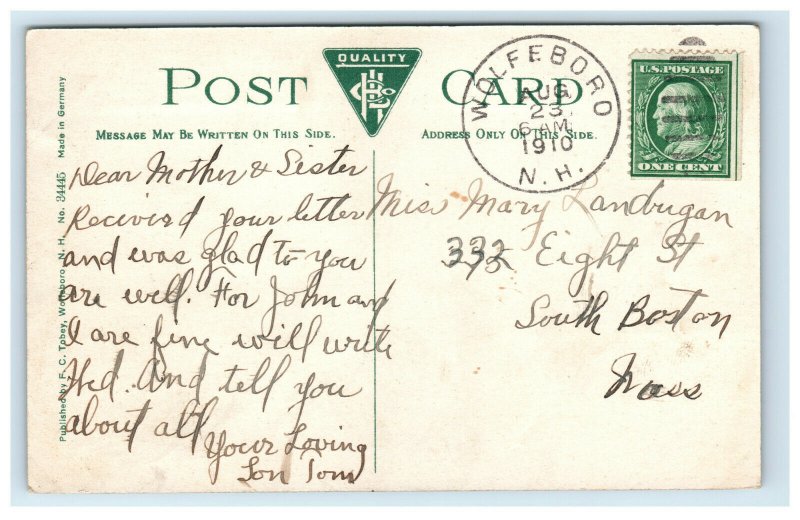 POST CARD
QUALITY
MESSAGE MAY BE WRITTEN ON THIS SIDE.
ADDRESS ONLY ON THIS SIDE.
WOLFEBORO
AUG
23
6 AM
1910
N. H.
U.S. POSTAGE
ONE CENT
Made in Germany
No. 34445
Published by F. C. Tobey, Wolfeboro, N. H.
Dear Mother & Sister
Recivied your letter
and was glad to you
are well. For John and
I are fine will write
Wed. And tell you
about all
Your Loving
Son Tom
Miss Mary Landrigan
332 Eight St
South Boston
Mass